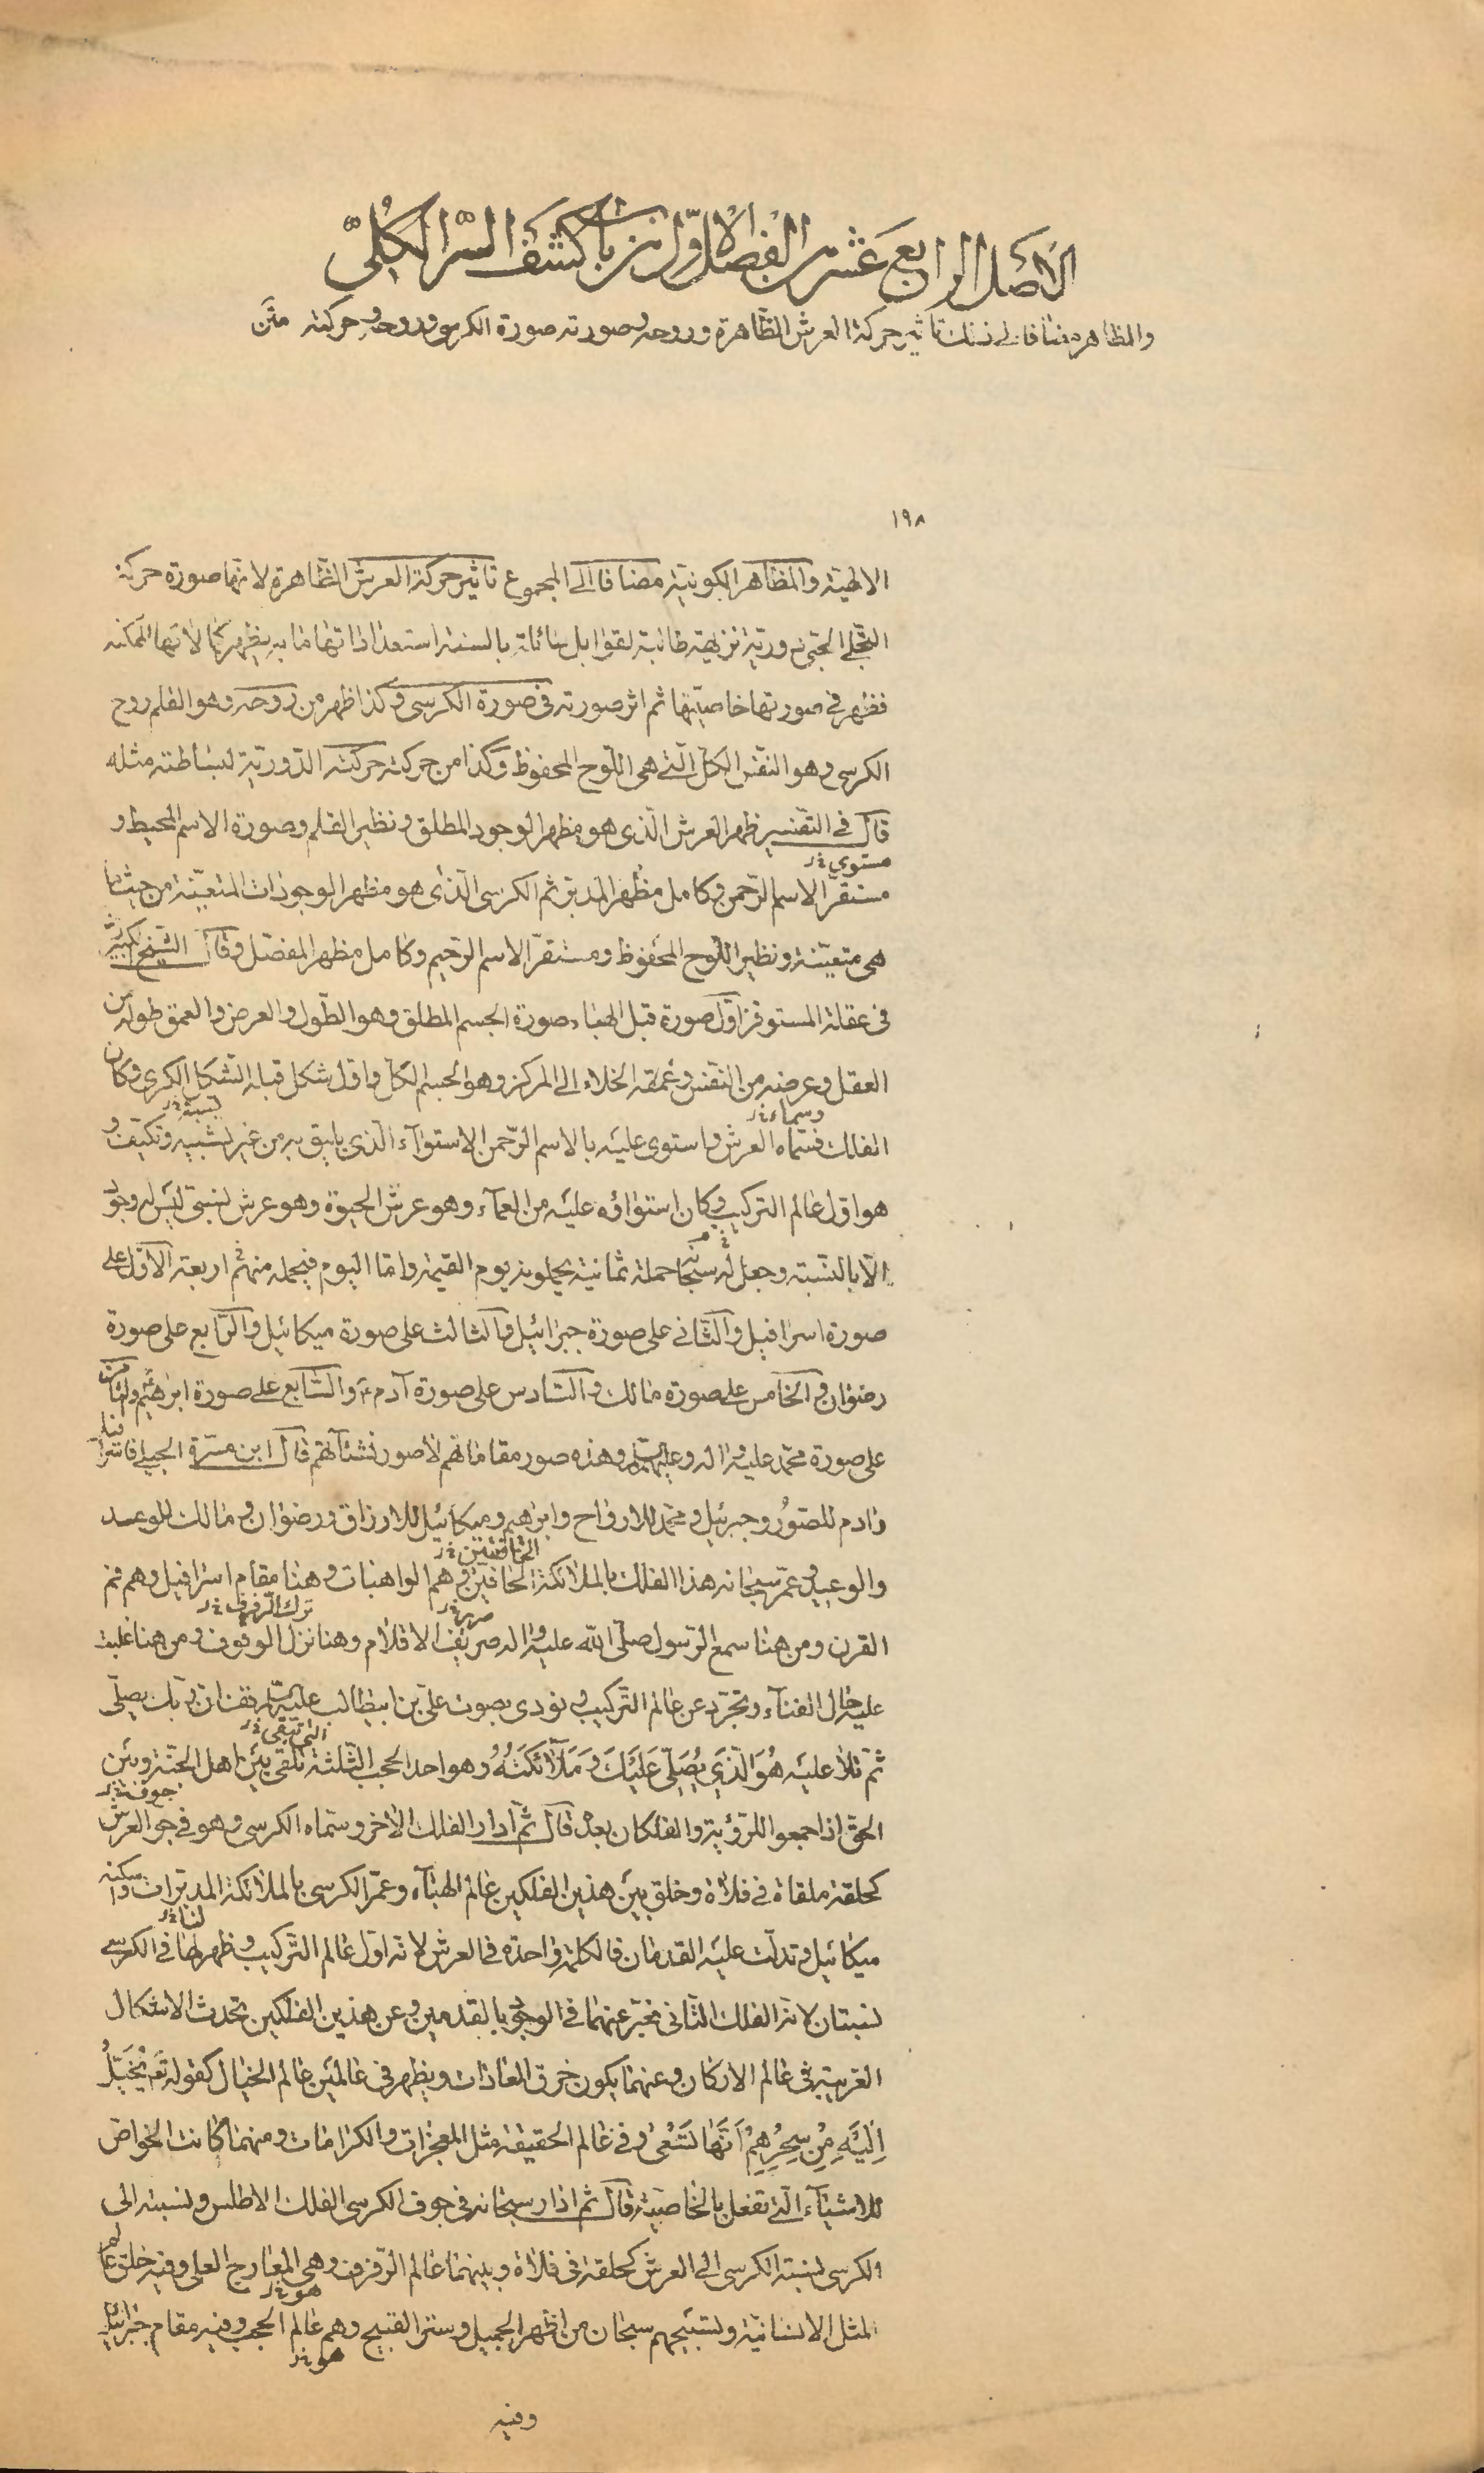 الاصل الرابع عشر من الفصل الاول من باب كشف السر الكلى
والمظاهر مضافا الى ذلك تاثير حركة العرش الظاهرة وروحه وصورته صورة الكرسى وروحه وحركته متن
١٩٨
الالهية والمظاهر الكونية مضافا الى المجموع تاثير حركة العرش الظاهرة لانها صورة حركة
التجلى الحبى دورية نزيهة طالبة لقوابل سائلة بالسنة استعداداتها ما به يظهر كمالاتها الممكنة
فظهر فى صورتها خاصيتها ثم اثر صورته فى صورة الكرسى وكذا ظهر من روحه وهو القلم روح
الكرسى وهو النفس الكل التى هى اللوح المحفوظ وكذا من حركته حركته الدورية لبساطته مثله
قال فى التفسير ظهر العرش الذى هو مظهر الوجود المطلق ونظير القلم وصورة الاسم المحيط و
مستوى خ ل
مستقر الاسم الرحمن وكامل مظهر المدبر ثم الكرسى الذى هو مظهر الوجودات المتعينة من حيث ما
هى متعينة ونظير اللوح المحفوظ ومستقر الاسم الرحيم وكامل مظهر المفصل وقال الشيخ الكبير
فى عقلة المستوفز اول صورة قبل الهباء صورة الجسم المطلق وهو الطول والعرض والعمق طوله من
العقل وعرضه من النفس وعمقه الخلاء الى المركز وهو الجسم الكل واول شكل قبله الشكل الكرى وكان
وسماه خ ل تشبيه خ ل
الفلك فسماه العرش واستوى عليه بالاسم الرحمن الاستواء الذى يليق به من غير تشبيه وتكييف و
هو اول عالم التركيب وكان استواؤه عليه من العماء وهو عرش الحيوة وهو عرش نسبى ليس له وجود
الا بالنسبة وجعل له سبحانه حملة ثمانية يحملونه يوم القيمة واما اليوم فيحمله منهم اربعة الاول على
صورة اسرافيل والثانى على صورة جبرائيل والثالث على صورة ميكائيل والرابع على صورة
رضوان والخامس على صورة مالك والسادس على صورة آدم ع والسابع على صورة ابرهيم والثامن
على صورة محمد عليه واله وعليهم السلام وهذه صور مقاماتهم لا صور نشاتهم قال ابن مسرة الجبلى فاسرافيل
وادم للصور وجبرئيل ومحمد للارواح وابرهيم وميكائيل للارزاق ورضوان ومالك للوعد
والوعيد وعمر سبحانه هذا الفلك بالملائكة الحافين وهم الواهبات وهنا مقام اسرافيل وهم فم
الحافتين خ ل صرير خ ل ترك الرفرف خ ل
القرن ومن هنا سمع الرسول صلى الله عليه واله صريف الاقلام وهنا نزل الوقوف ومن هنا غلبت
عليه حال الفناء وتجرد عن عالم التركيب ونودى بصوت على بن ابيطالب عليه السلام قف ان ربك يصلى
التى تبقى خ ل
ثم تلا عليه هُوَ الَّذي يُصَلّي عَلَيْكَ وَمَلائكَتُهُ وهو احد الحجب الثلثة تلقى بين اهل الجنة وبين
جوف خ ل
الحق اذا جمعوا للرؤية والفلكان بعده قال ثم ادار الفلك الاخر وسماه الكرسى وهو فى جو العرش
كحلقة ملقاة فى فلاة وخلق بين هذين الفلكين عالم الهباء وعمر الكرسى بالملائكة المدبرات واسكنه
لنا خ ل
ميكائيل وتدلت عليه القدمان فالكلمة واحدة فى العرش لانه اول عالم التركيب وظهر لها فى الكرسى
نسبتان لانه الفلك الثانى فعبر عنهما فى الوجود بالقدمين وعن هذين الفلكين تحدث الاشكال
الغريبة فى عالم الاركان وعنهما يكون خرق العادات ويظهر فى عالمين عالم الخيال كقوله تع يُخَيَّلُ
اِلَيْهِ مِنْ سِحْرِهِمْ اَنَّها تَسْعى وفى عالم الحقيقة مثل المعجزات والكرامات ومنهما كانت الخواص
للاشياء التى تفعل بالخاصية قال ثم ادار سبحانه فى جوف الكرسى الفلك الاطلس ونسبته الى
الكرسى نسبة الكرسى الى العرش كحلقة فى فلاة وبينهما عالم الرفرف وهى المعارج العلى وفيه خلق عالم
هو خ ل
المثل الانسانية وتسبيحهم سبحان من اظهر الجميل وستر القبيح وهم عالم الحجب وفيه مقام جبرائيل
هو خ ل
وفيه